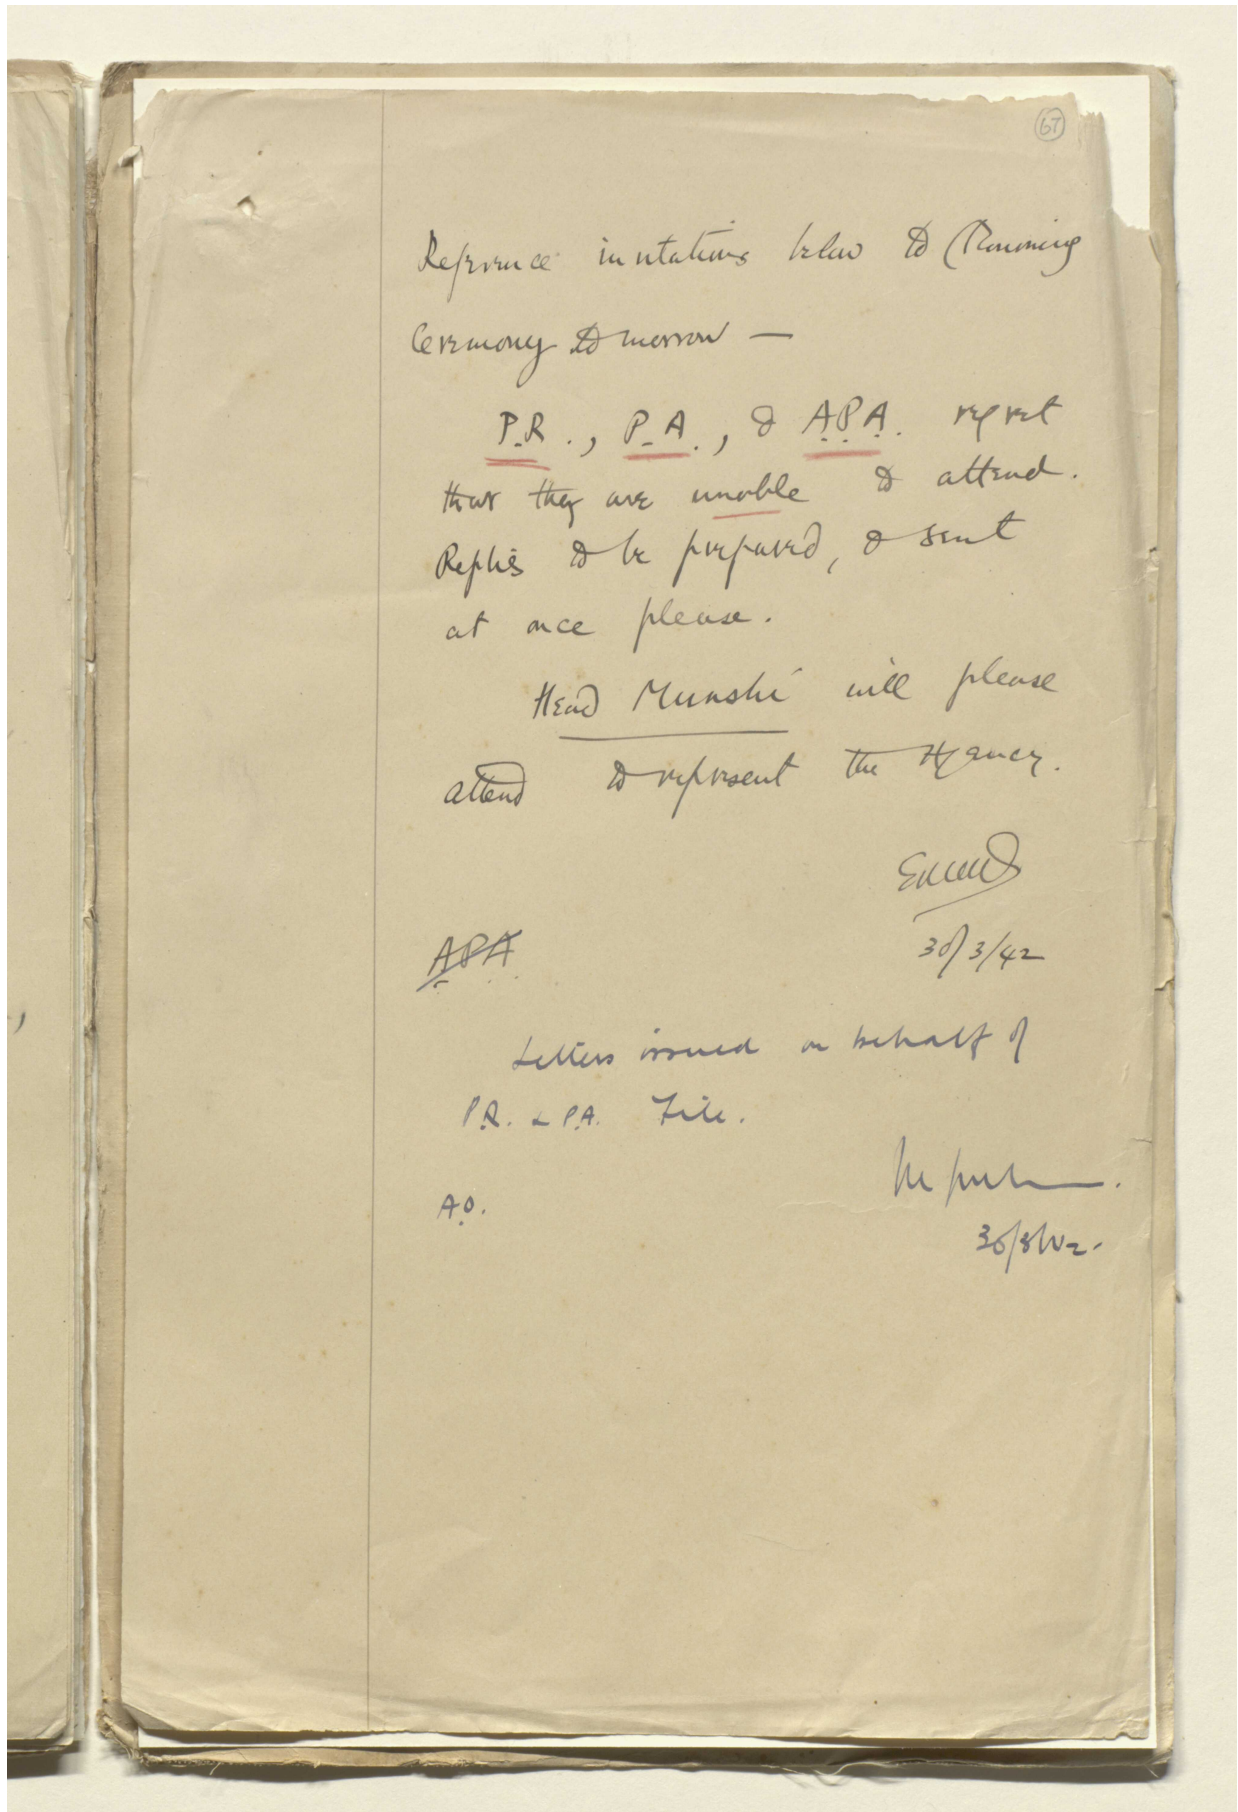 67
Reference invitations below to Crowning
Ceremony tomorrow —
P.R., P.A., & A.P.A. regret
that they are unable to attend.
Replies to be prepared, & sent
at once please.
Head Munshi will please
attend to represent the Agency.
30/3/42
APA
Letters issued on behalf of
P.R. & P.A. File.
A.O.
30/3/42.